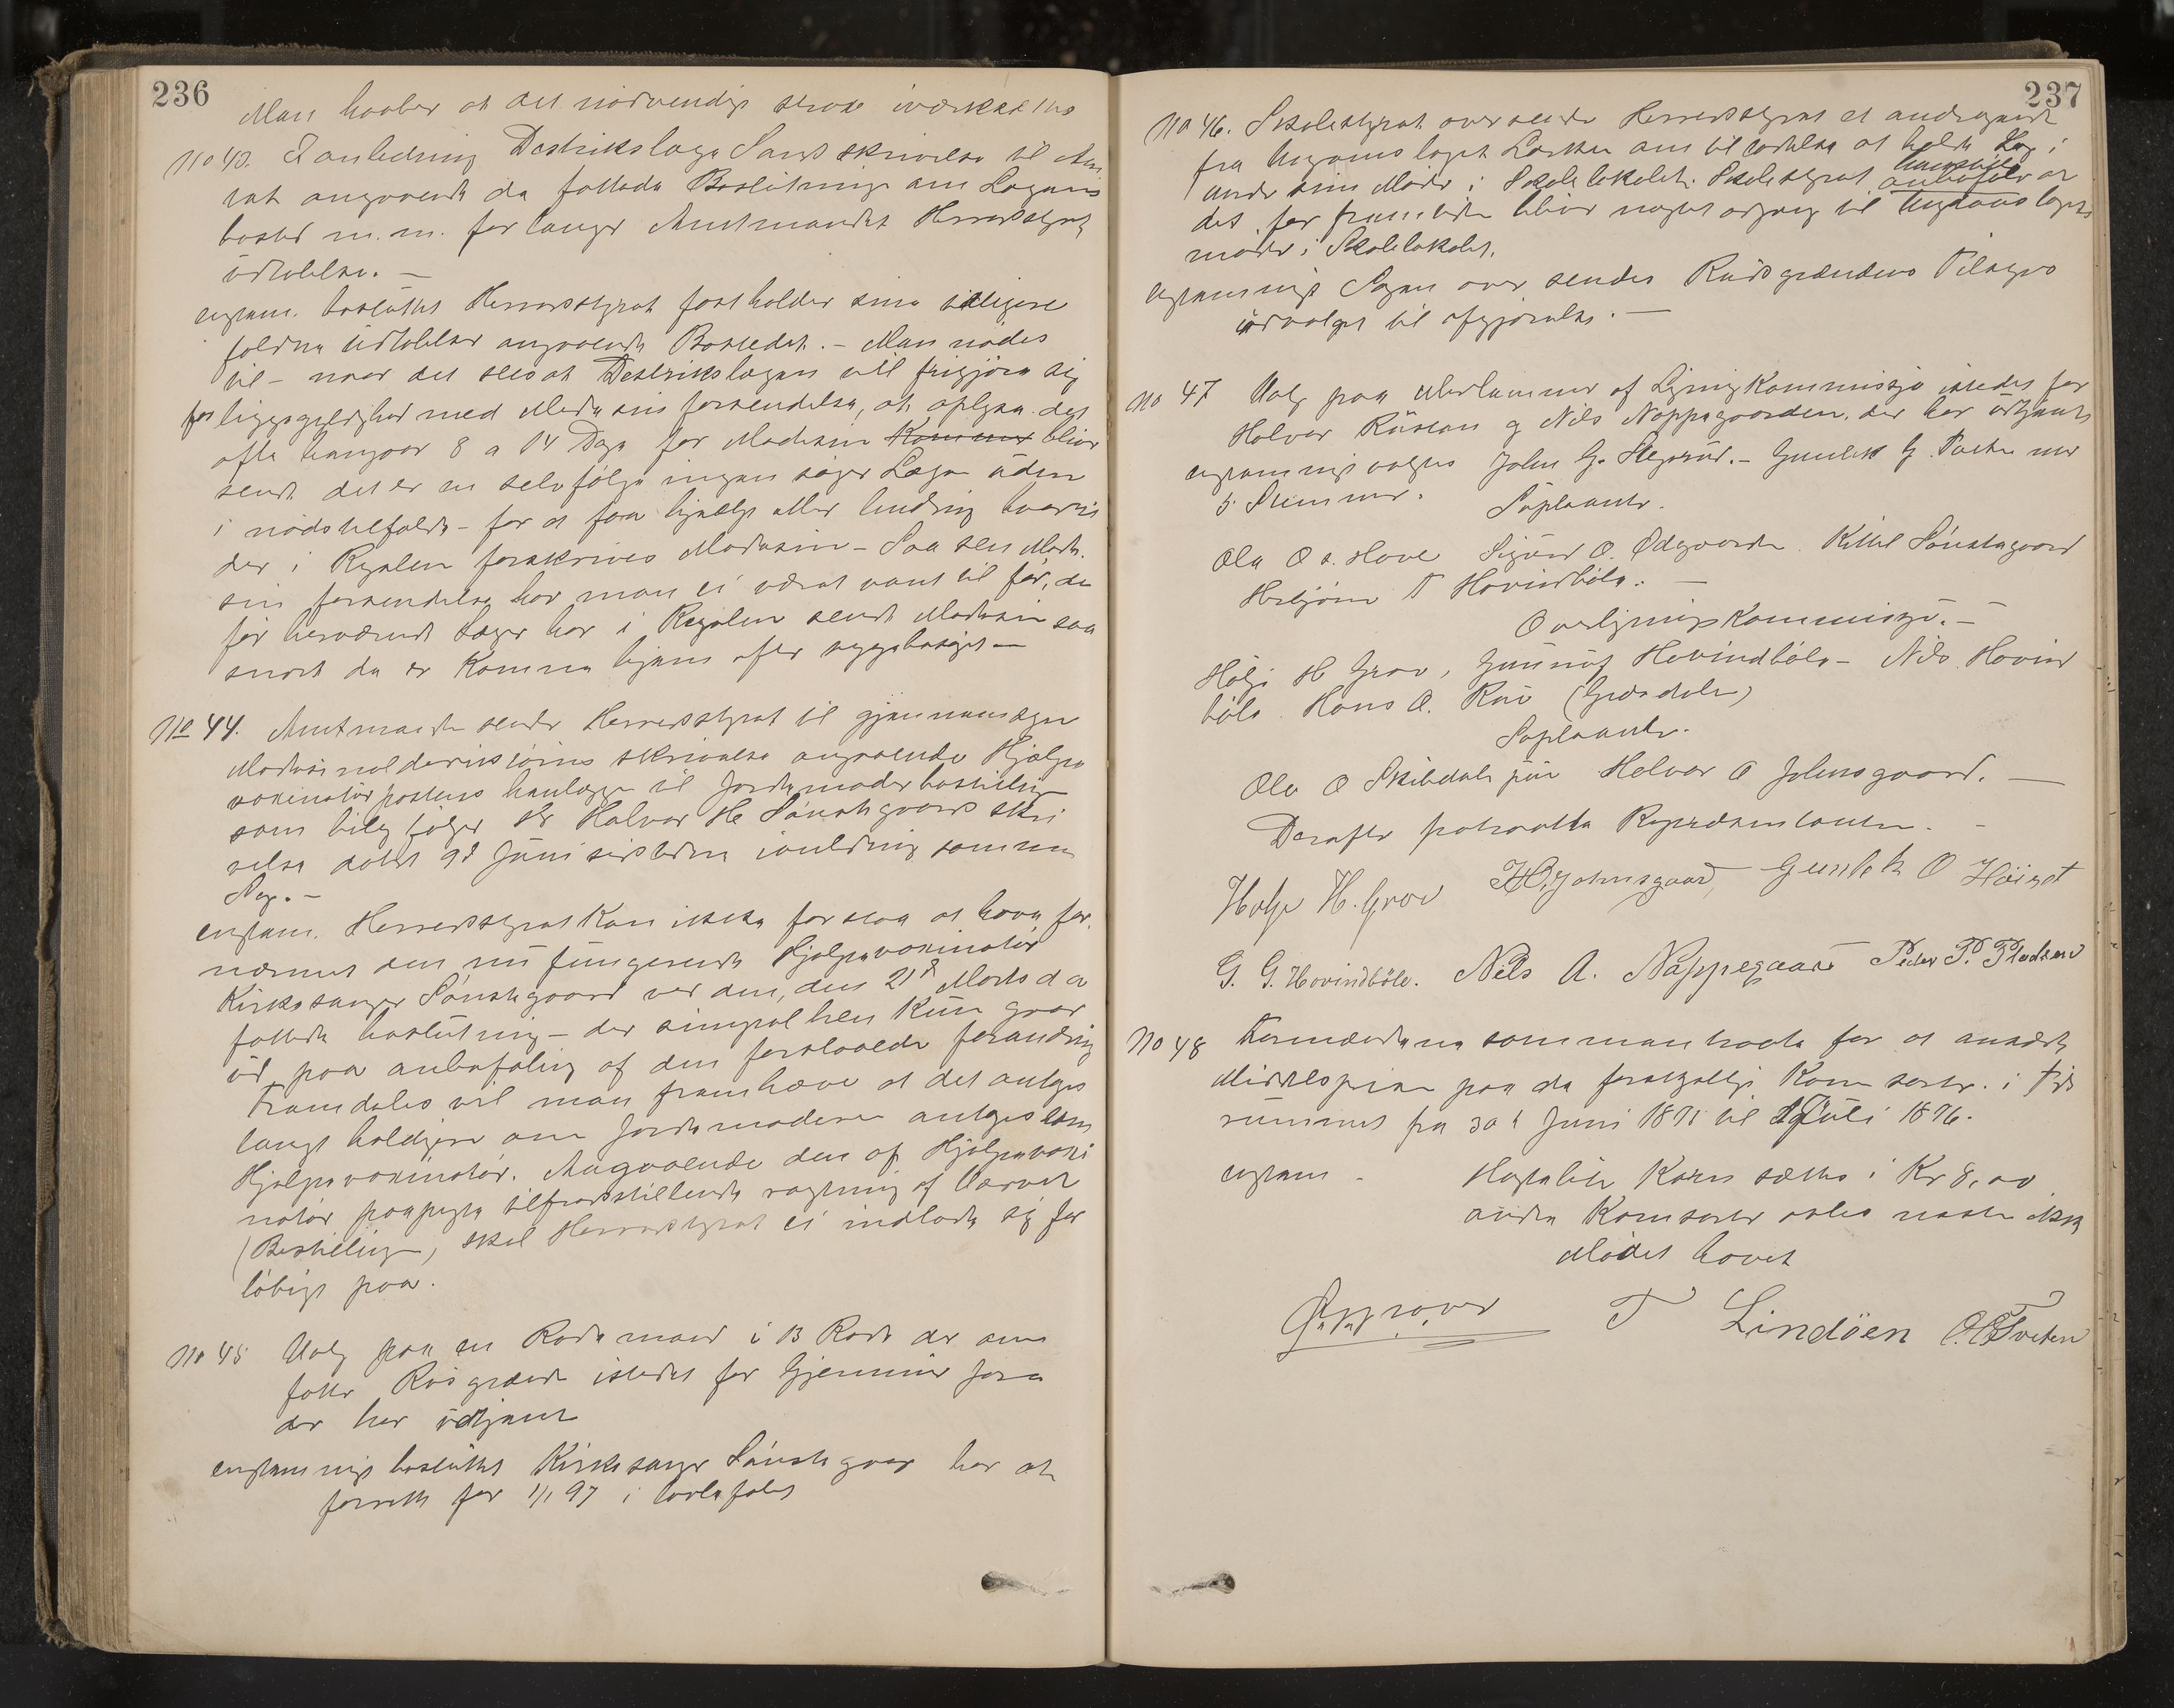 236
Man haaber at det nödvendige straks iværksættes
No 43. I anledning Destrikslæge Sands skrivelse til Am
tet angaaende da fattede Beslutninge om Lægens
bosted m.m. forlanger Amtmandet Herredsstyrets
udtalelse. —
enstem. besluttet Herredsstyret fastholder sine tidligere
faldne udtalelser angaaende Bostedet. — Man nödes
til – naar det sees at Destrikslægen vill frigjöre sig
for ligegyldighed med Medesins forsendelse, at oplyse det
ofte hengaar 8 a 14 Dage för Medesin Kommer bliver
sendt det er en selvfölge ingen söger Læge uden
i nödstilfælde – for at faa hjælp eller lindring hvorfor
der i Regelen forskrives Medesin – Saa sen Mede-
sin forsendelse har man ei været vant til för, de
för herværende Læger har i Regelen sendt Medesin saa
snart de er Komne hjem efter sygebesöget —
No 44. Amtmanden sender Herredsstyret til gjennemsyn
Medesinaldirektörens skrivelse angaaende Hjælpe
vaxinatörpostens henlægge til Jordemoderbestilling
som bilag fölger Hr Halvor H Sönstegaards skri
velse datert 9d Juni sidstleden i anledning samme
Sag. —
enstem. Herredsstyret Kan ikke forstaa at have for-
nærmet den nu fungerende Hjelpevaxinatör
Kirkesanger Sönstegaard ved den, den 21d Marts d a
fattede beslutning – der simpelthen Kun gaar
ud paa anbefaling af den foreslaaede forandring
Fremdeles vil man fremhæve at det antages
langt heldigere om Jordemoderen antages som
Hjelpevaxinatör. Angaaende den af Hjelpevaxi
natör paapegte tilfredsstillende røgtning af Hvervet
(Bestilling), skal Herredsstyret ei indlade sig for
löbigt paa.
No 45 Valg paa en Rodemand i 13 Rode der om
fatter Rusgrænd istedet for Gjermund Jore
der har udtjent
enstemmigt besluttet Kirkesanger Sönstegaard har at
forrette for 1/1 97 i tvelefald
237
No 46. Skolestyret oversender Herredsstyret et andragende
fra Ungdomslaget Lærken om tilladelse at holde Lag i
andre sine Möder i Skolelokalet. Skolestyret anbefaler at
henstiller
det for fremtiden bliver nægtet adgang til Ungdomslagets
möder i Skolelokalet.
enstemmigt Sagen over sendes Rusgrændens Tilsyns
udvalget til afgjörelse. —
No 47 Valg paa Medlemmer af LigningKommissjo istedet for
Halvor Rüsten og Nils Nappegaarden, der har udtjent
enstemmigt valgtes John G. Skjerud. – Gunlek G Tveten med
5 Stemmer. Suplianter.
Ola O s. Hove Sigurd O. Ødegaarden Kittil Sönstegaard
Herbjörn T Hovindböle. —
OverligningsKommissjo. —
Holje H Grov, Gunnuf Hovindböle – Nils Hovind
böle Hans A. Rue (Græsdalen)
Suplianter.
Ola O Skibdalen jun Halvor O Johnsgaard. —
Derefter fratraatte Repræsentanter. –
Holje H. Grov H O Johnsgaard, Gunlek O Höiset
G. G. Hovindböle. Nils A. Nappegaard Peder P. Pladsen
No 48 Formændene sammentraatte for at ansætte
Middelprisen paa de forskjellige Kornsorter i Tids
rummet fra 30d Juni 1875 til 1 Juli 1876.
enstem – Hektoliter Korn sættes i Kr 8,00
andre Kornsorter avles næsten ikke
Mödet hævet
T Lindöen O. Tveten